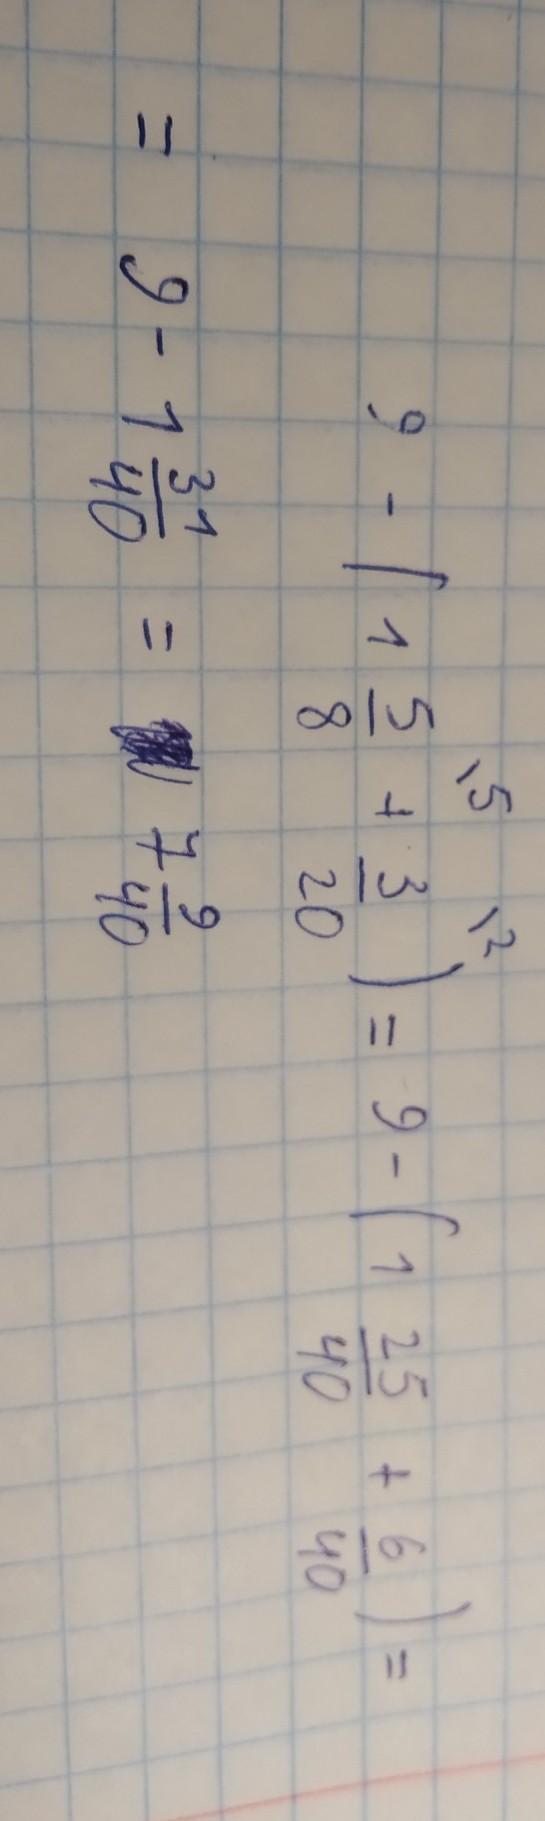 9 - ( 1 5/8 \5 + 3/20 \2 ) = 9 - ( 1 25/40 + 6/40 ) =
= 9 - 1 31/40 = 7 9/40